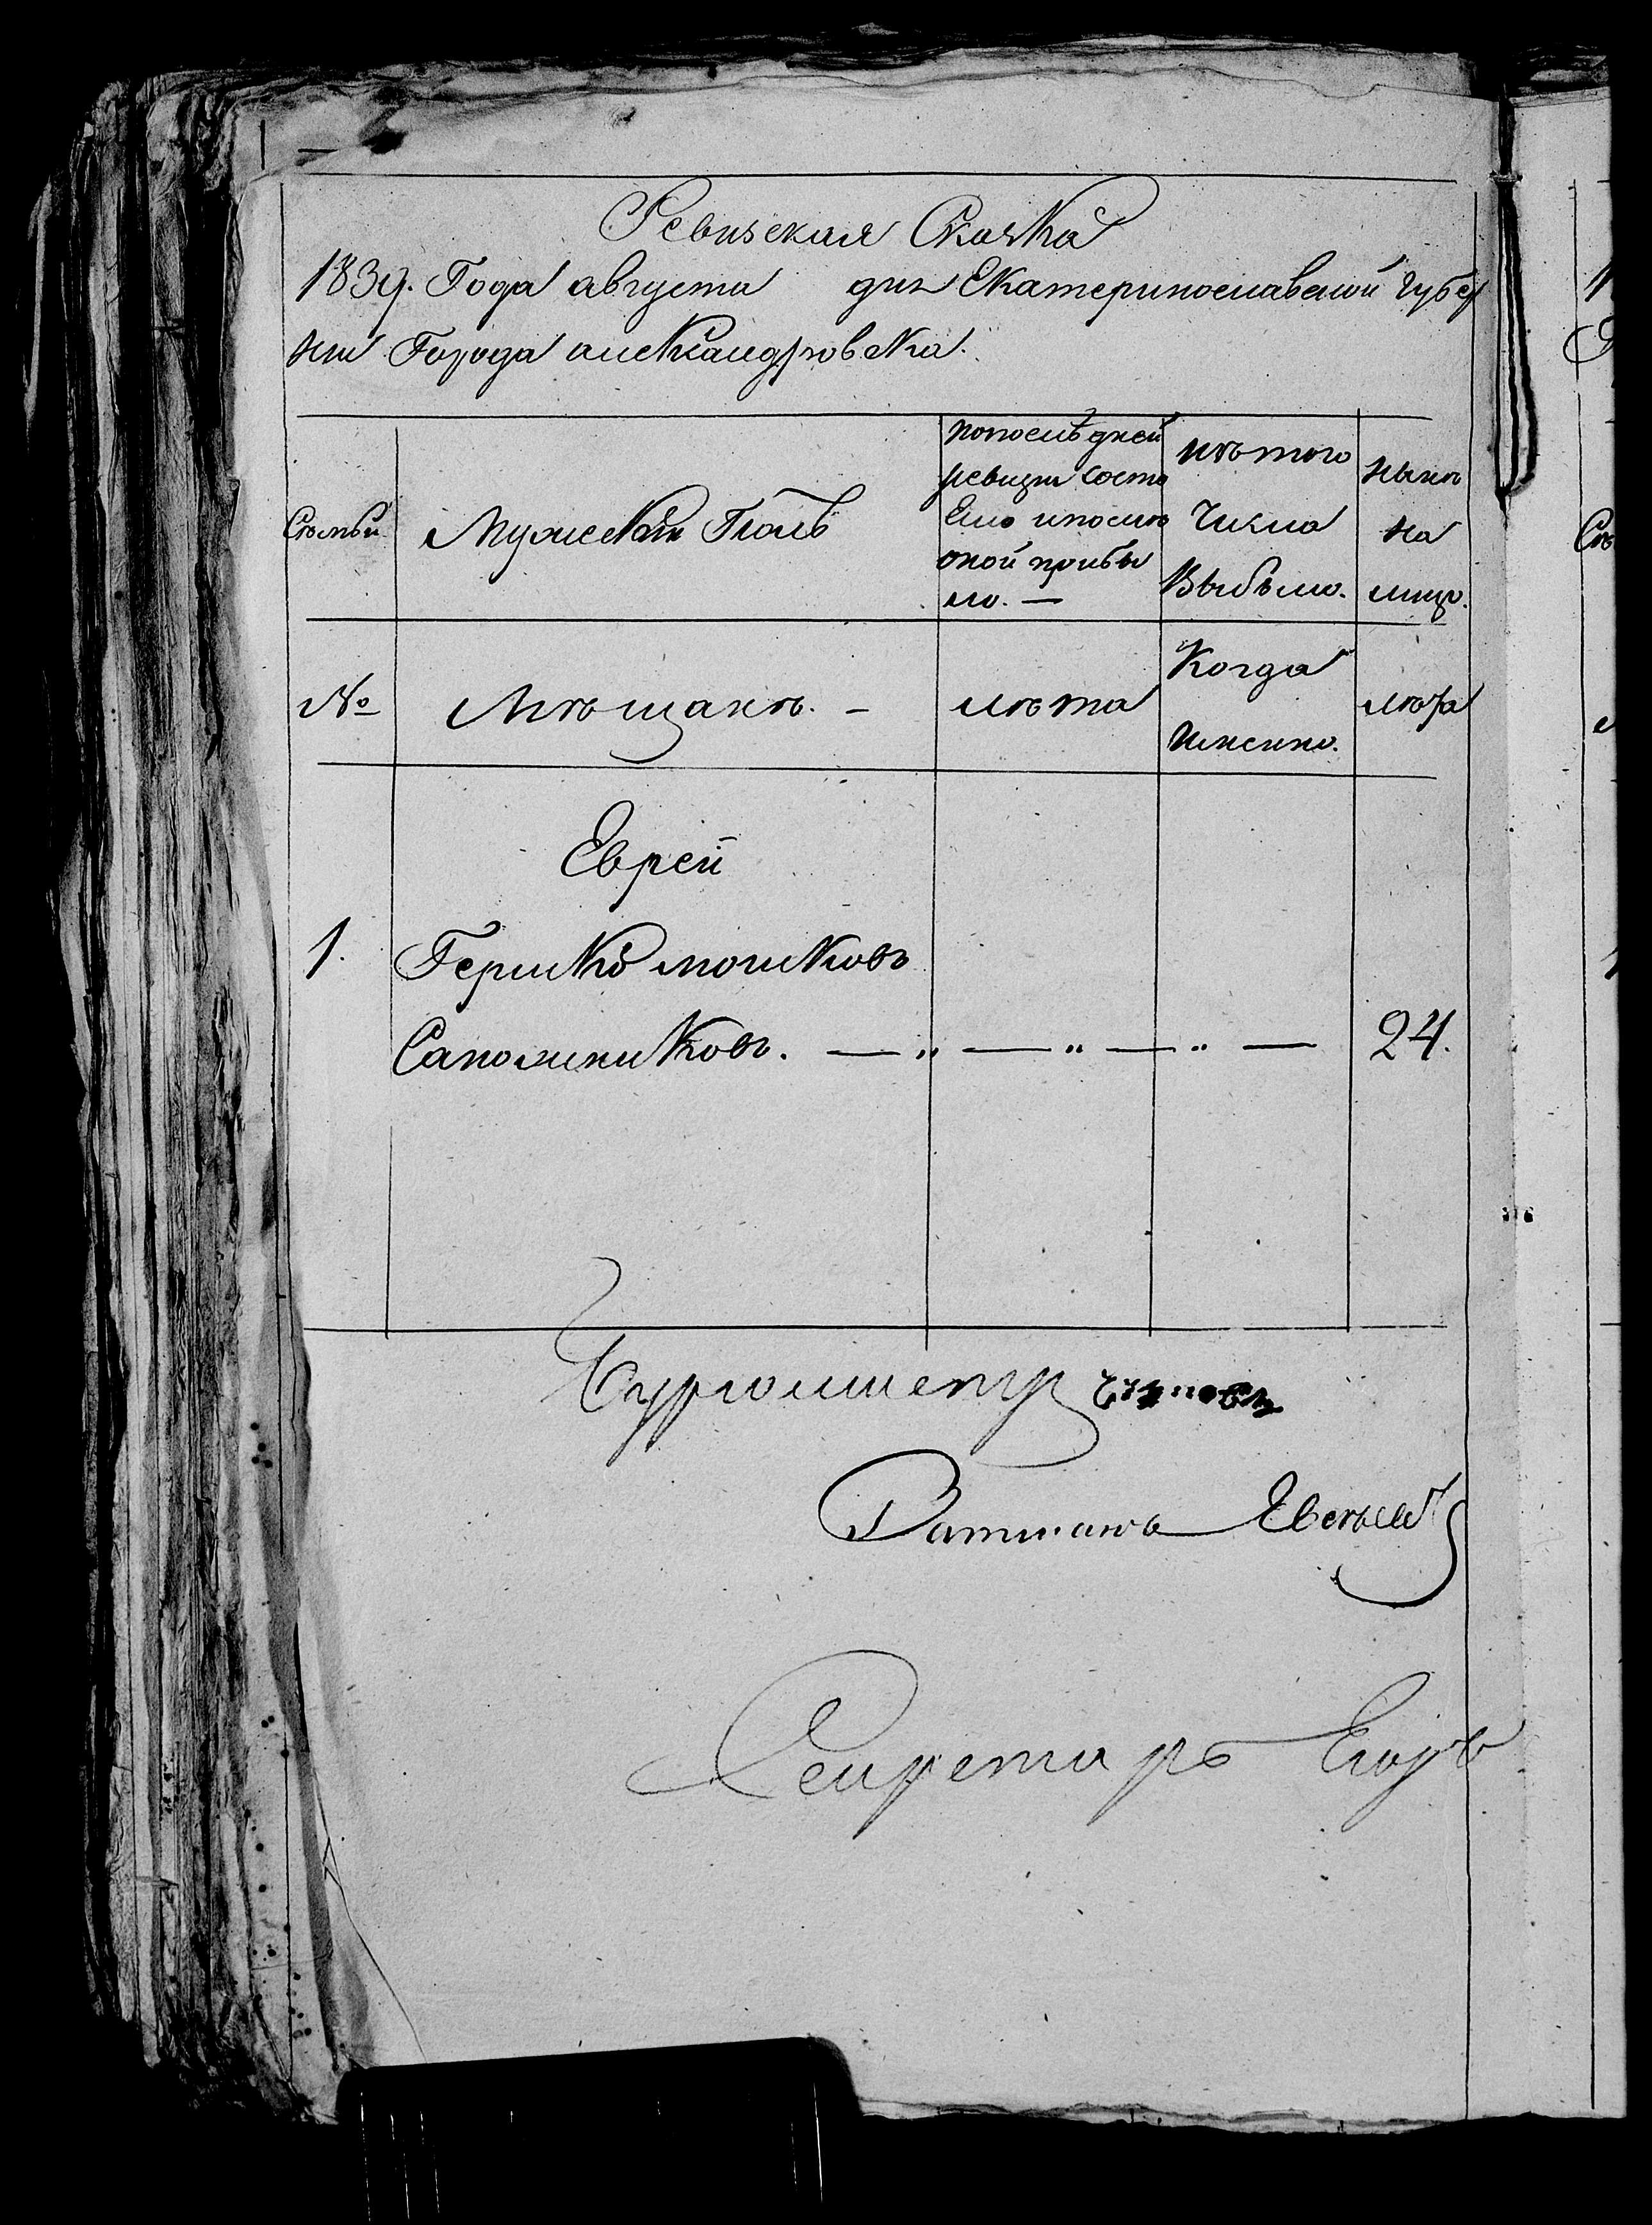 Ревизская Сказка
1839. Года августа дня Екатеринославской Губер
нии Города александровска.
Семьи
Мужеский Полъ
попоследней
ревизии состо
Ело ипосле
оной прибы
ло. —
изъ того
Числа
Выбыло.
ныне
на
лицо.
№
Мѣщанъ. —
лѣта
Когда
Именно.
лѣта
Еврей
1. Гершко мошковъ
Сапожниковъ. — „ — „ — „ — 24.
Бургомистр
Ратманъ Евсѣевъ
Секретарь